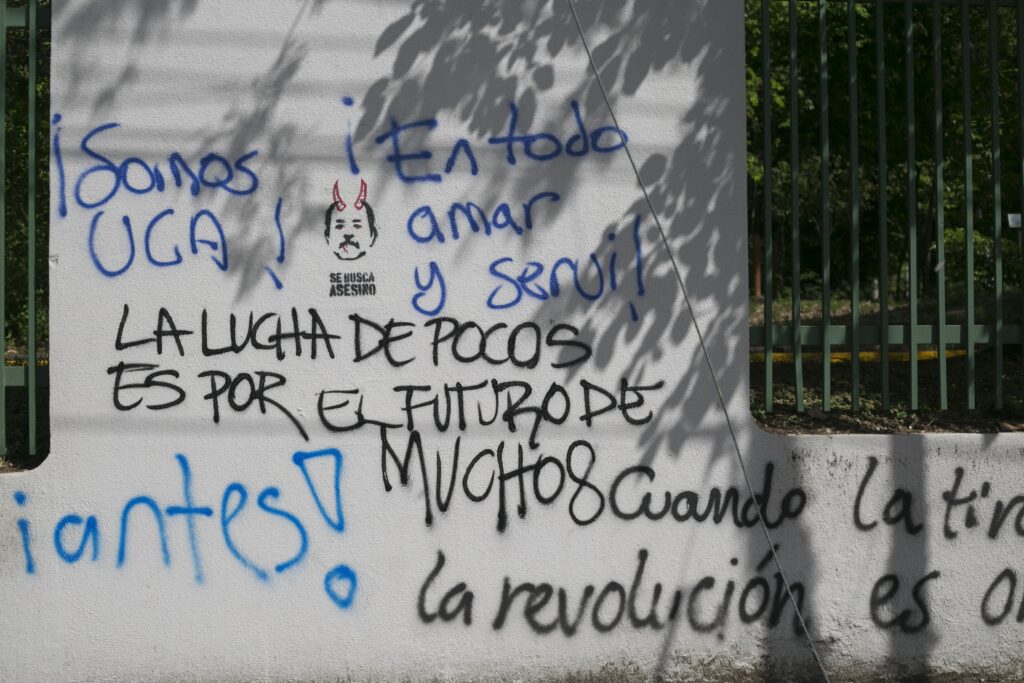 ¡Somos
UCA!
¡En todo
amar
y servi!
SE BUSCA
ASESINO
LA LUCHA DE POCOS
ES POR EL FUTURO DE
MUCHOS
iantes!
Cuando la tira
la revolución es o